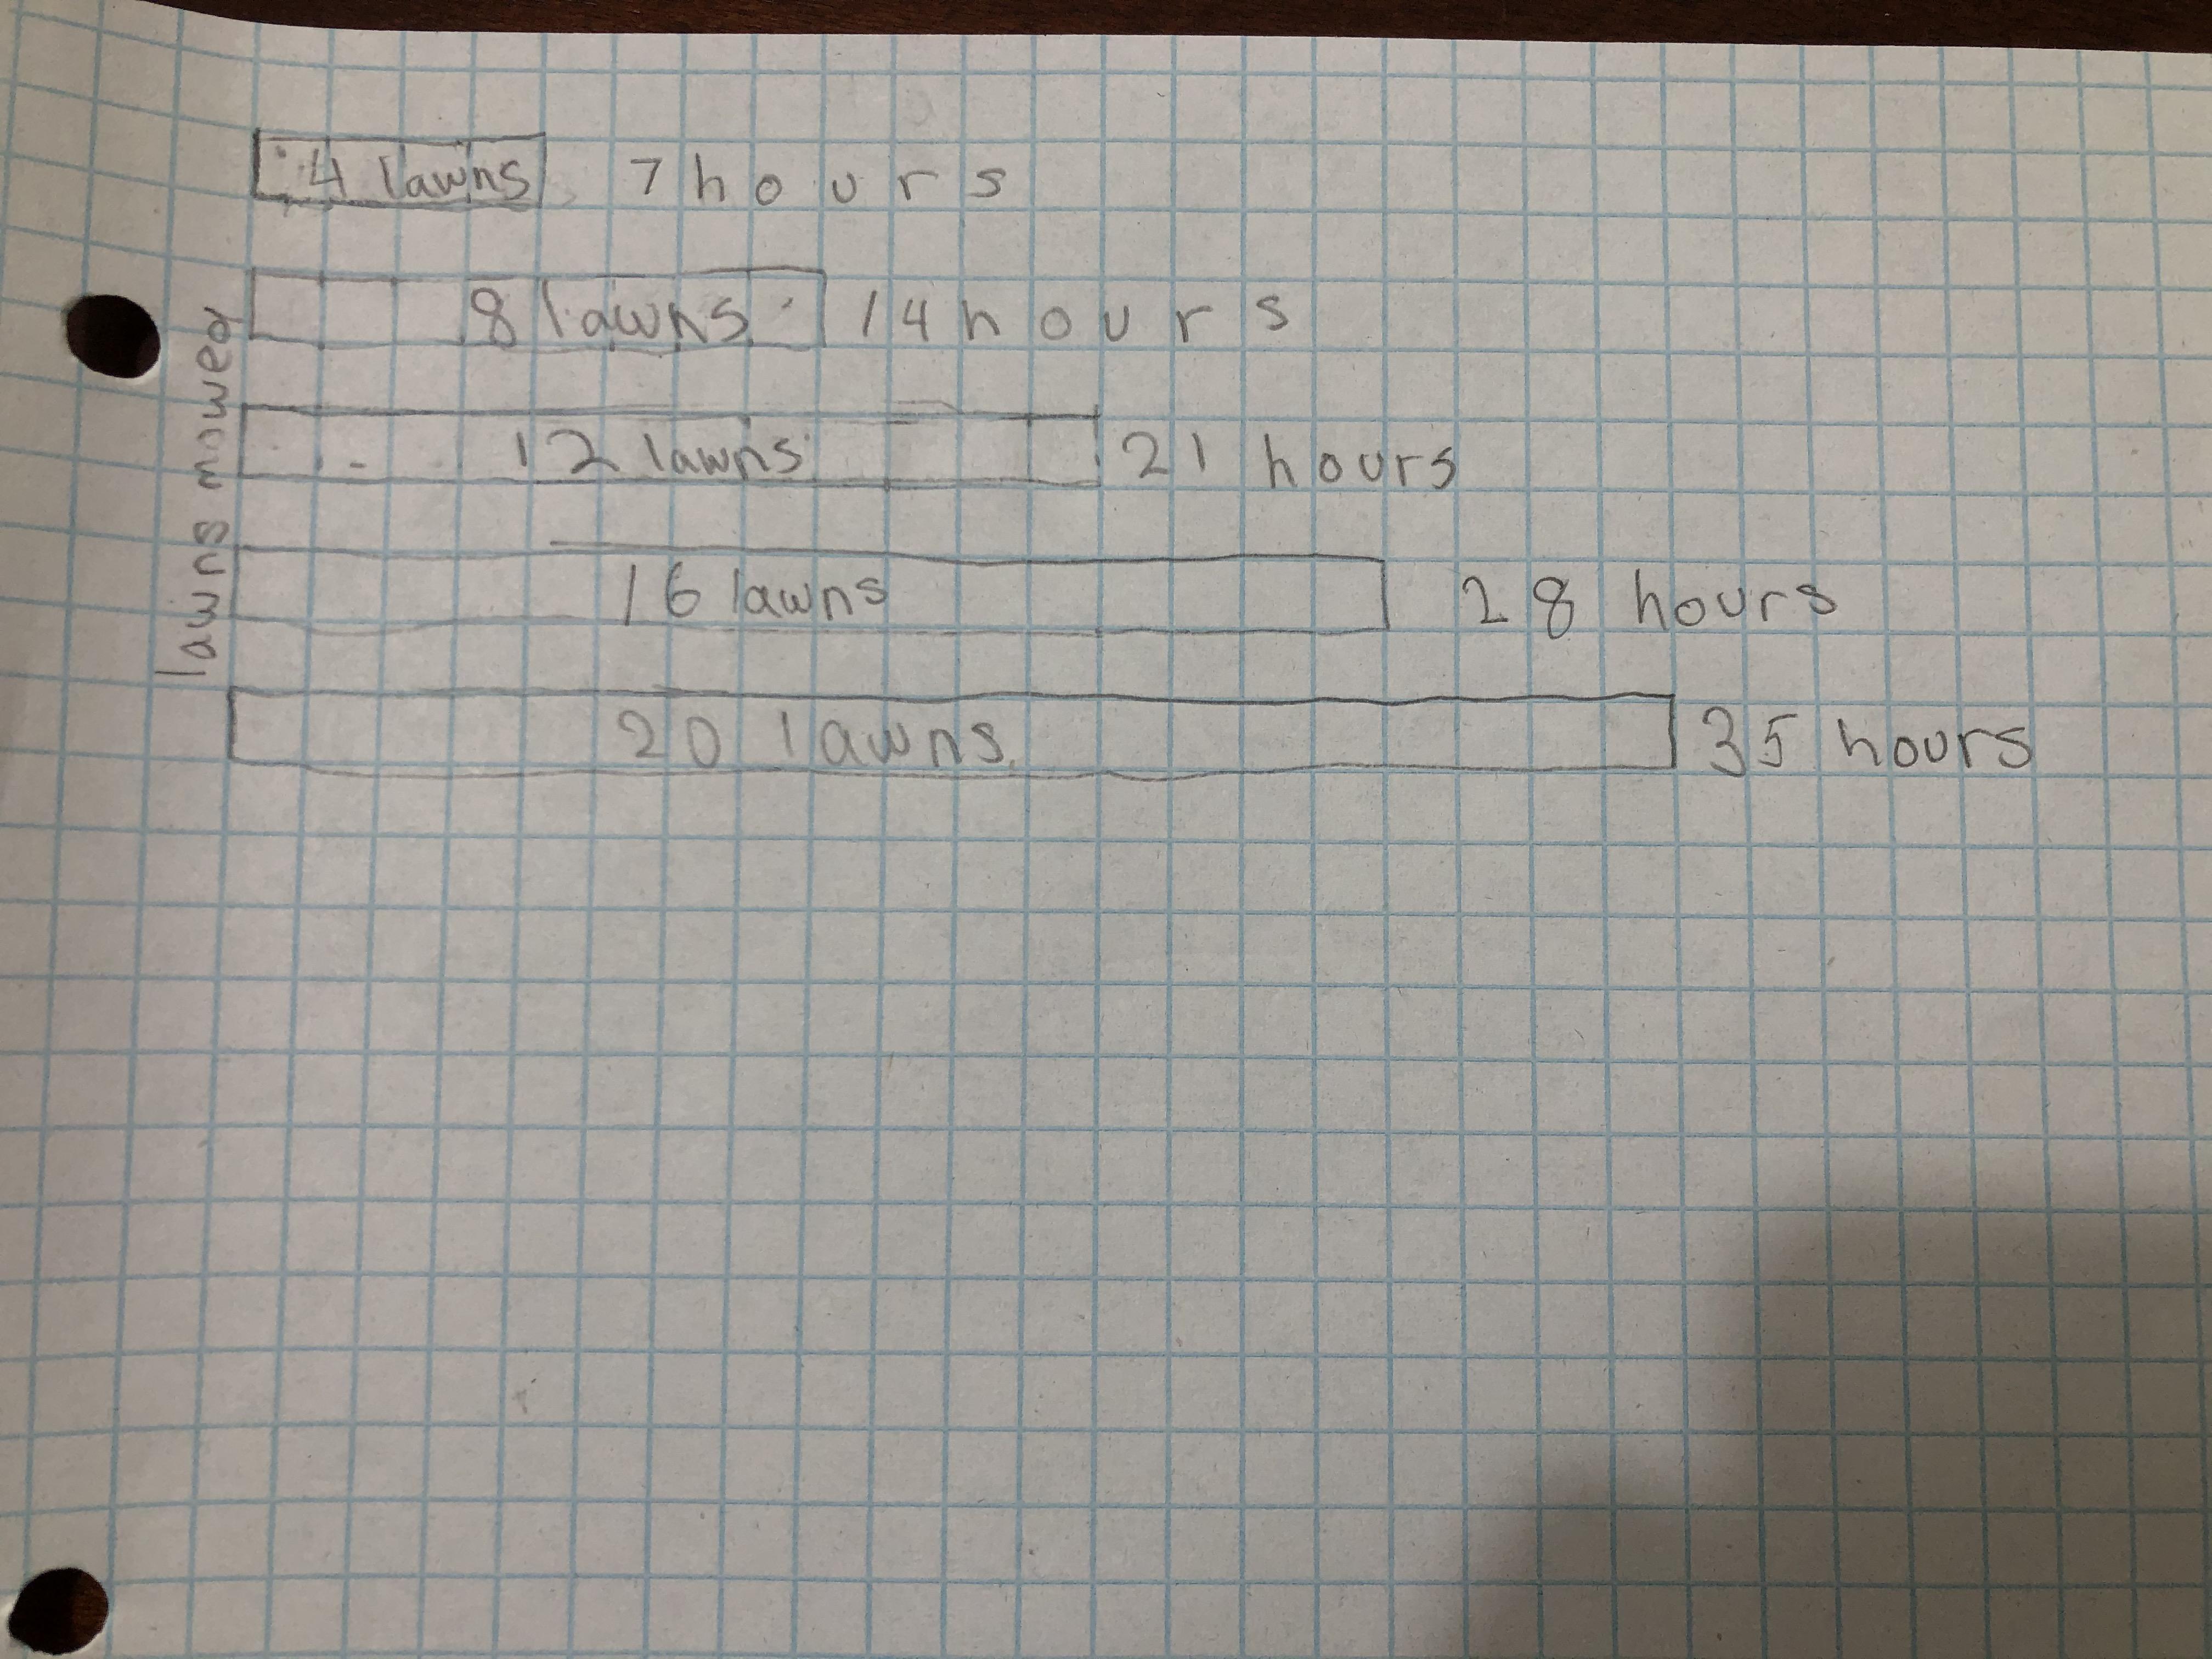 4 lawns 7 hours
8 lawns 14 hours
12 lawns 21 hours
16 lawns 28 hours
20 lawns 35 hours
lawns mowed